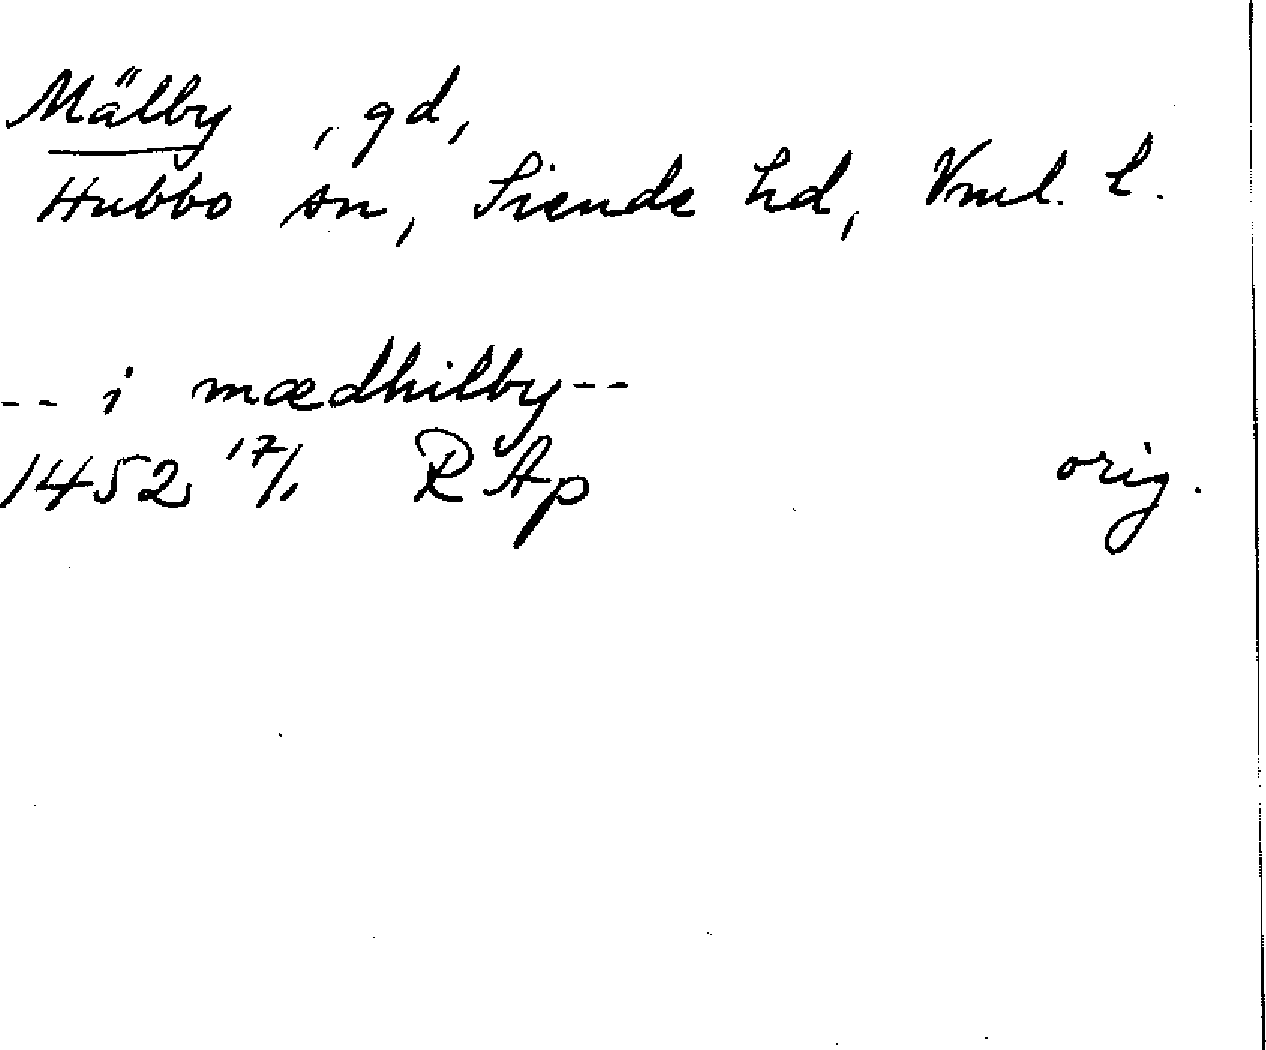 Mälby , gd,
Hubbo sn, Siende hd, Vml. l.
-- i mædhilby --
1452 17/1 RAp orig.